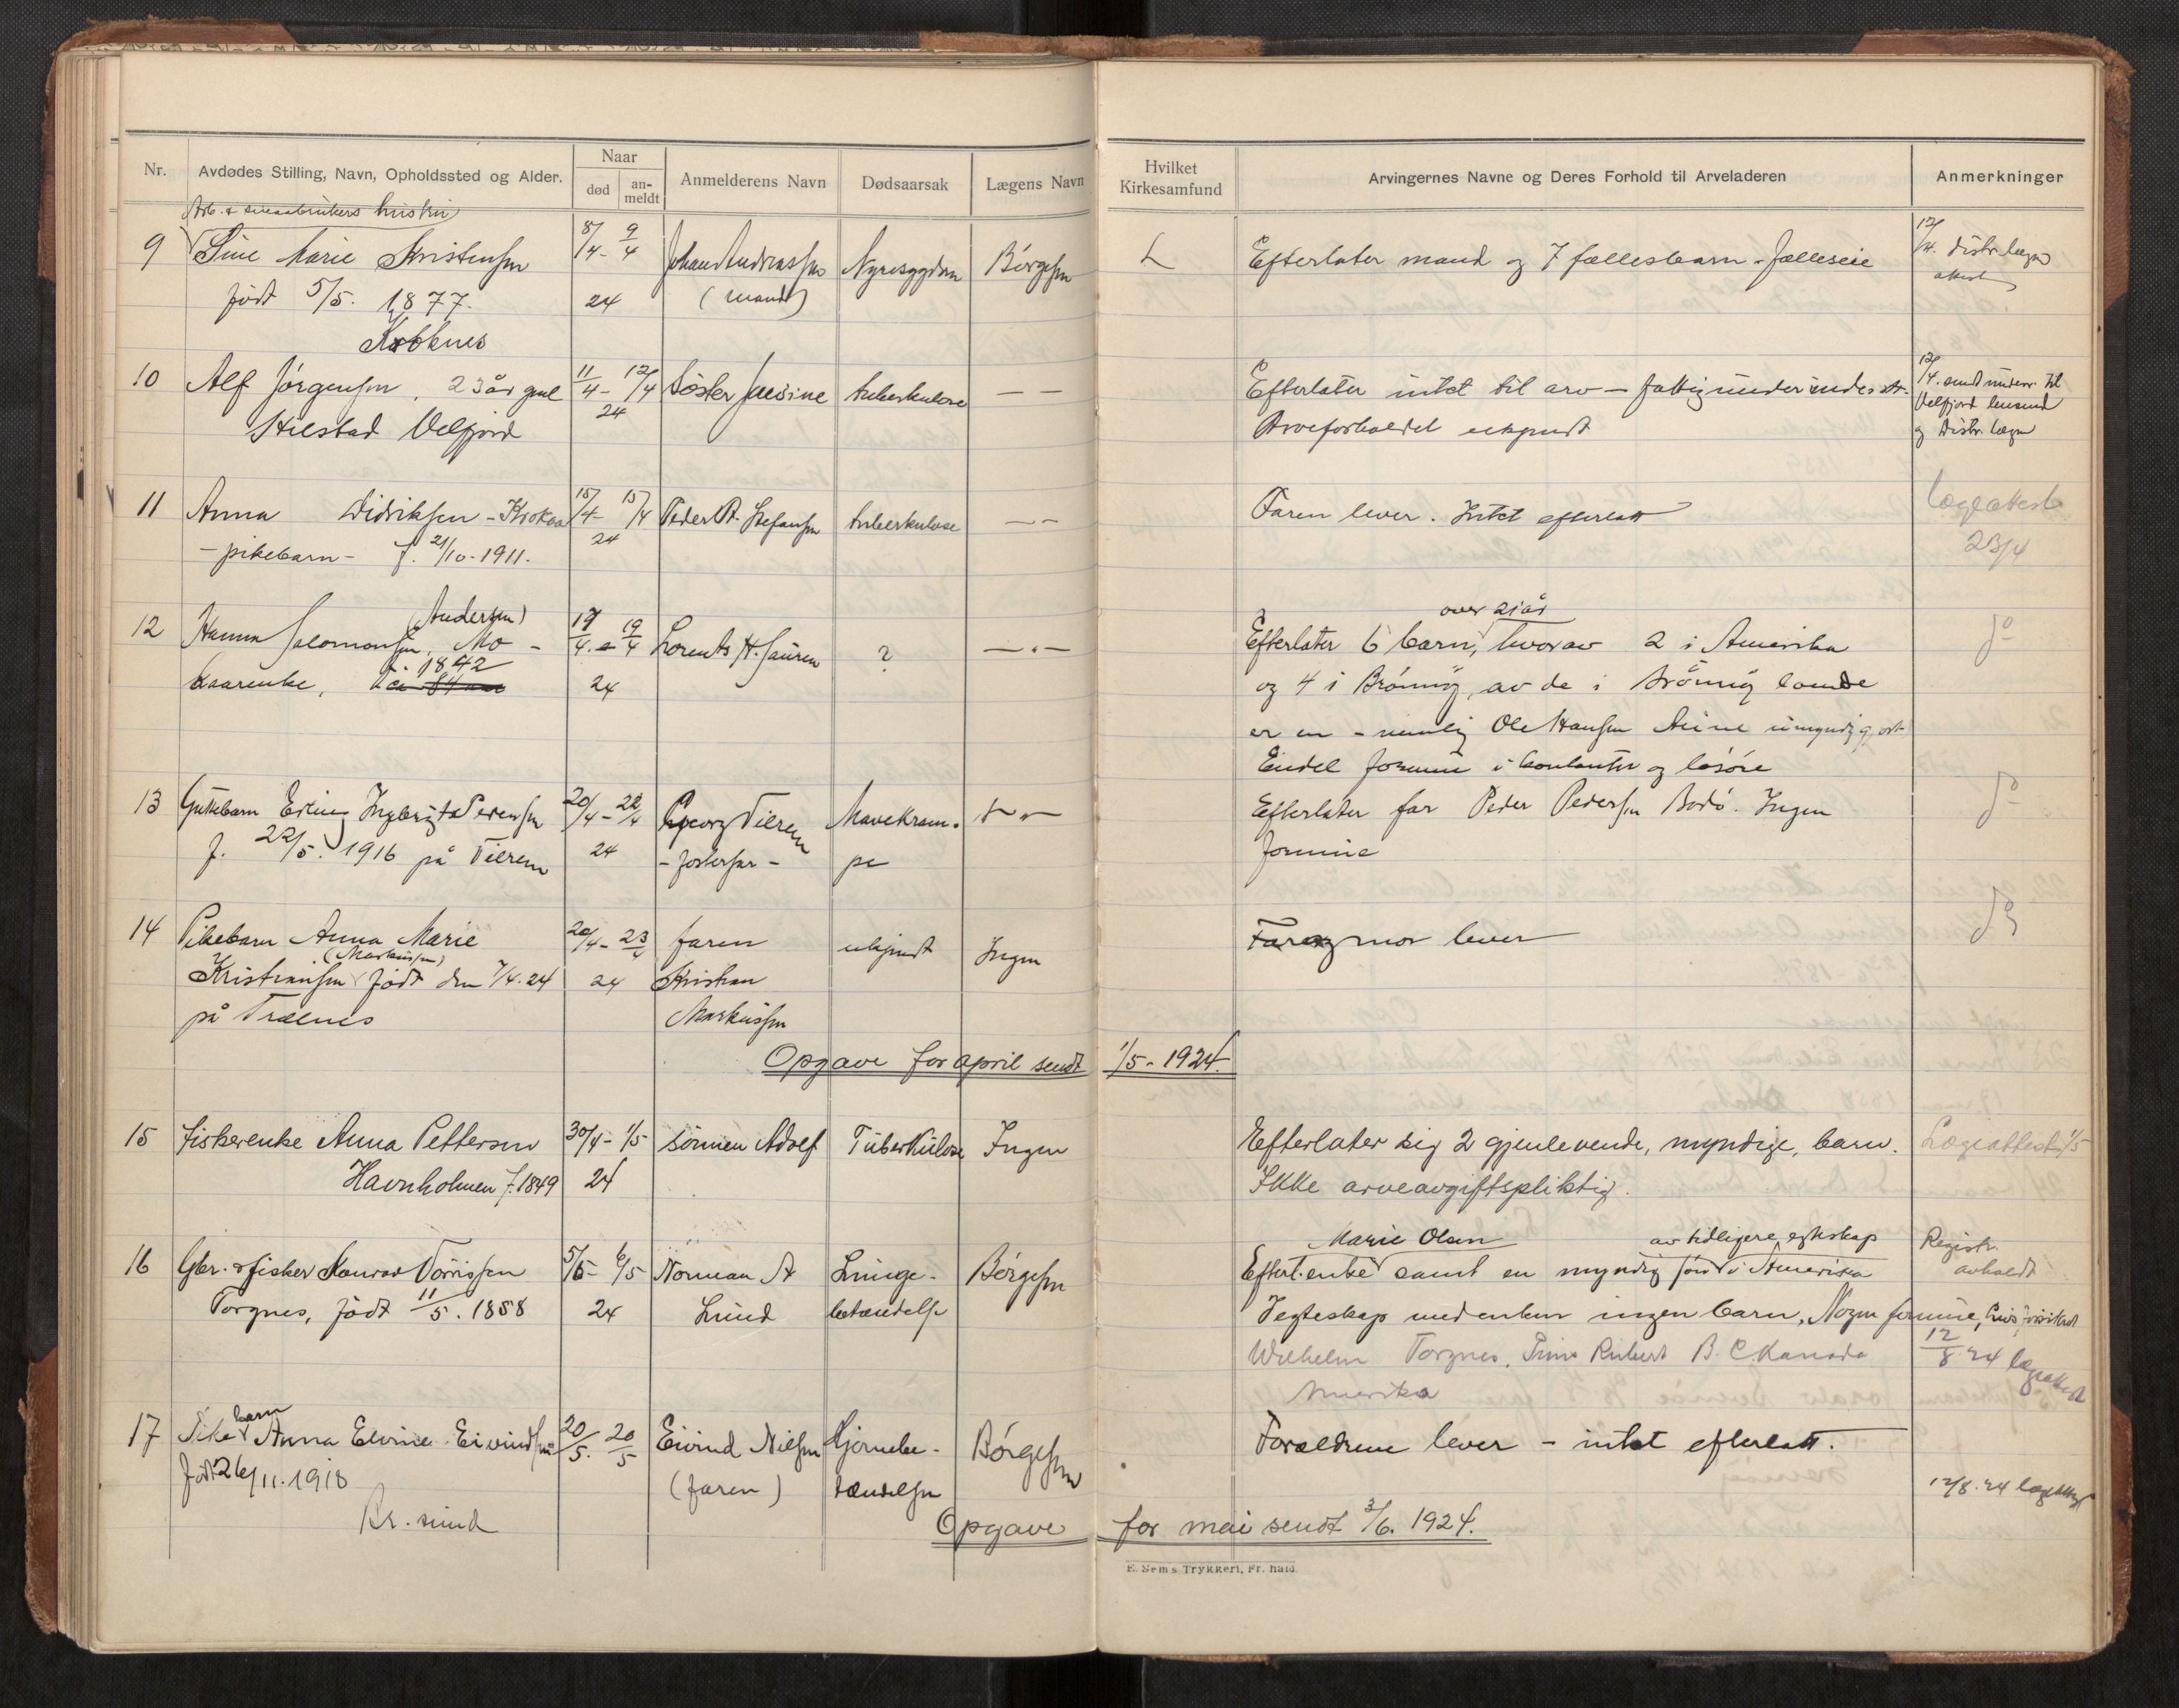 Nr.
Avdødes Stilling, Navn, Opholdssted og Alder.
Naar
død
an-
meldt
Anmelderens Navn
Dødsaarsak
Lægens Navn
Hvilket
Kirkesamfund
Arvingernes Navne og Deres Forhold til Arveladeren
Anmerkninger
Arb. & hustru
9 Sine Marie Kristensen 8/4 - 9/4 Johan Andreassen Nyresygdom Børgesen L Efterlater mand og 7 fællesbarn - fælleseie 12/4. distr. lægen
født 5/5. 1877. 24 (mand) attest
10 Alf Jørgensen, 23 år gml 11/4 - 12/4 Søster Jensine tuberkulose — — Efterlater intet til arv — fattigunder 12/4. sendt underr. til
Hilstad Velfjord 24 Arveforholdet ukjendt Velfjord lensmd
og Distr. lægen
11 Anna Didriksen - 15/4 - 15/4 Peder A. Stefansen tuberkulose — — Faren lever. Intet efterlatt lægeattest
- pikebarn - f. 21/10 - 1911. 24 23/4
(Andersen) over 21 år
12 Hanna Salomonsen, Mo - 19/4 Lorents H. Sauren ? — „ — Efterlater 6 barn, hvorav 2 i Amerika do
Kaarenke, 1842 24 og 4 i Brønnøy, av de i Brønnøy boende
er en - nemlig Ole Hansen umyndig gjort
Endel formue i kontanter og løsøre
13 Guttebarn Erling Ingbrigt Pedersen 20/4 - 22/4 Georg Tilrem Mavekram- — „ — Efterlater far Peder Pedersen Bodø. Ingen do
f. 22/5. 1916 på Tilrem 24 - fosterfar - pe formue
14 Pikebarn Anna Marie 20/4 - 23/4 faren ukjendt Ingen Far og mor lever do
(Markussen)
Kristiansen født den 7/4. 24 24 Kristian
på Trælnes Markussen
Opgave for april sendt 1/5 - 1924.
15 Fiskerenke Anna Pettersen 30/4 - 1/5 sønnen Adolf Tuberkulose Ingen Efterlater sig 2 gjenlevende, myndige, barn. Lægeattest 1/5
Havnholmen f. 1849 24 Ikke arveavgiftspliktig.
Marie Olsen av tidligere egteskap Registr.
16 Gbr. & fisker Konrad Torrissen 5/5 - 6/5 Norman A Lunge- Børgesen Efterl. enke samt en myndig søn i Amerika avholdt
Torgnes, født 11/5. 1858 24 Lund betændelse I egteskap med enken ingen barn. Nogen formue,
Wilhelm Torgnes, Rubert B. C. Kanada 12/8 24 lægeattest
Amerika
barn
17 Pike Anna Elvine Eivindsen 20/5. 20/5 Eivind Nilsen Hjernebe- Børgesen Forældrene lever - intet efterlatt.
født 26/11. 1918 (faren) tændelse 12/8. 24 lægeattest
Br. sund
Opgave for mai sendt 3/6. 1924.
E. Sems Trykkeri, Fr. hald.